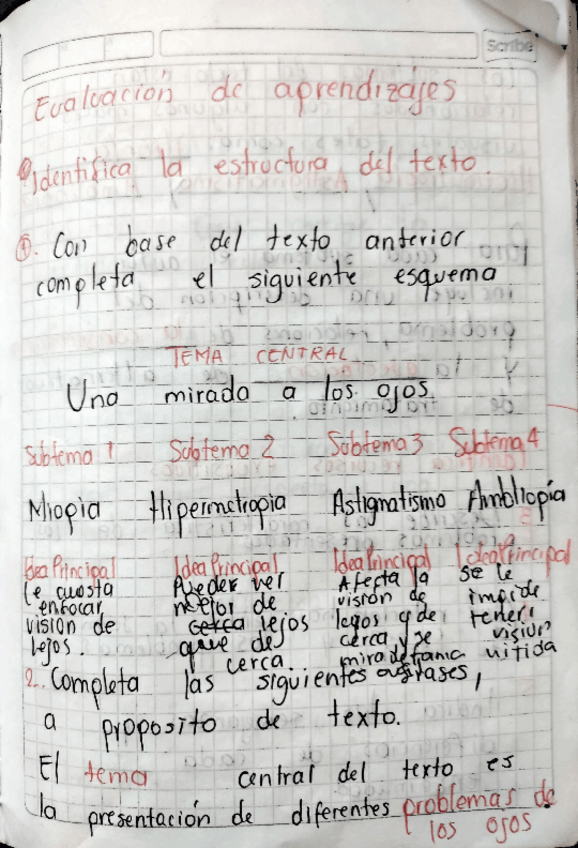 Scribe
Evaluación de aprendizajes
Identifica la estructura del texto.
①. Con base del texto anterior
completa el siguiente esquema
TEMA CENTRAL
Una mirada a los ojos
Subtema 1 Subtema 2 Subtema 3 Subtema 4
Miopia Hipermetropia Astigmatismo Ambliopía
Idea Principal Idea Principal Idea Principal Idea Principal
le cuesta Pueder ver Afecta la se le
enfocar mejor de visión de impide
visión de lejos legos y de tener
lejos. que de cerca y se visión
cerca. mira de forma nitida
2. Completa las siguientes frases,
a proposito de texto.
El tema central del texto es
la presentación de diferentes problemas de
los ojos